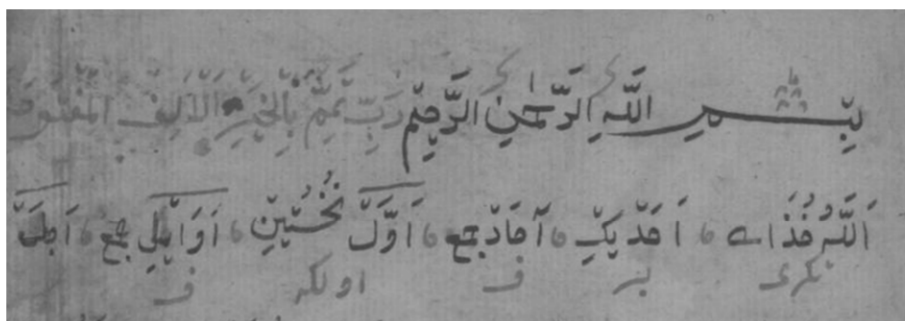 بِسْمِ اللَّهِ الرَّحْمٰنِ الرَّحِيمِ رَبِّ تَمِّمْ بِالْخَيْرِ اَلْاَلِفُ الْمَفْتُوحَ
اَللَّهُ خُذَاى اَحَدْ يَكِ آحَادْ جمع اَوَّلْ نُخُسْتِينْ اَوَايِلْ جمع
تكرى بر ف اولكى ف